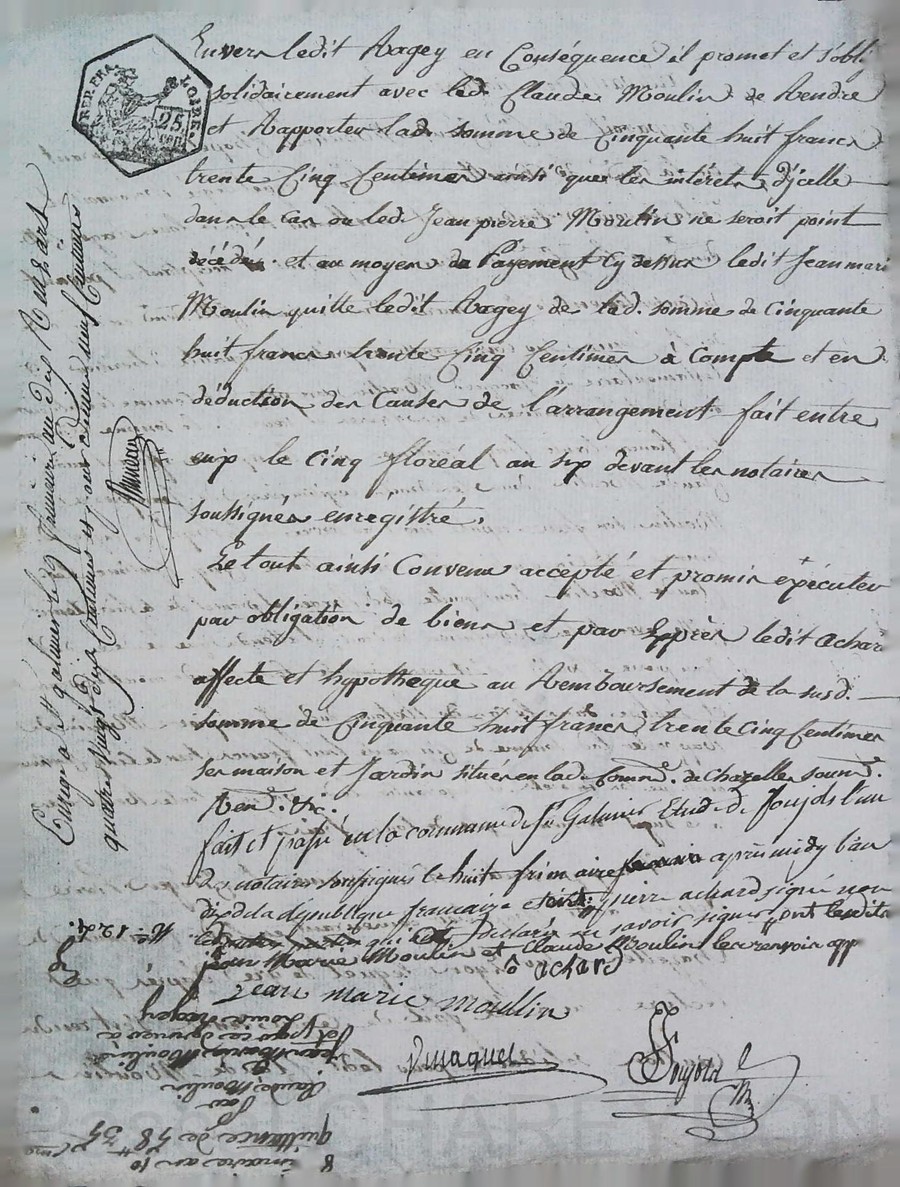 REP. FRA.
25
Envers ledit Ragey en Conséquence il promet et s'obli
solidairement avec led. Claude Moulin de Rendre
et Rapporter lad. somme de Cinquante huit francs
trente Cinq Centimes ainsi que les intérêts d'jcelle
dans le cas ou led. Jean pierre Moulin ne seroit point
décédé. et au moyen du Payement Cy dessus ledit Jean mari
Moulin quitte ledit Ragey de lad. somme de Cinquante
huit francs trente Cinq Centimes à Compte et en
déduction des Causes de l'arrangement fait entre
eup le Cinq floréal an sip devant les notaires
soussignés enregistré.
Le tout ainsi Convenu accepté et promis éxécuter
par obligation de biens et par Epprès ledit achar
affecte et hypothéque au Remboursement de la susd.
somme de Cinquante huit francs trente Cinq Centimes
ses maison et Jardin situés en lad. Comne. de chazelles soumd.
Rend. &c.
fait et passé en la commune de St Galmier Etude de Joujols l'un
Des notaires soussignés le huit frimaire après midy l'an
dix de la République française et pierre achard signé non
qui Déclaré ne savoir signer ont lesdits
jean Marie Moulin et Claude Moulin lec renvoir app
achard
Jean marie moullin
Joujols
Enregé à St galmier le frimaire an dix
quatre vingt dix Centimes et pour subvention neuf Centimes
8 frimaire an 10
quittance de 58 35
par
Claude Moulin
et
jean Marie Moulin
à
Louis Ragey